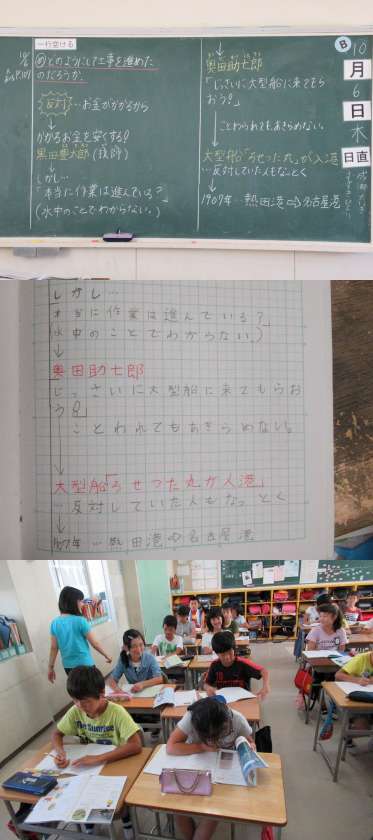 一行空ける
めどのようにして工事を進めた
のだろうか。
反対
…お金がかかるから
かかるお金を安くする!
黒田豊太郎(技師)
しかし…
「本当に作業は進んでいる?」
(水中のことでわからない。)
奥田助七郎
「じっさいに大型船に来てもら
おう!」
ことわられてもあきらめない。
大型船「ろせった丸」が入港
…反対していた人もなっとく
1907年…熱田港⇨名古屋港
B
10
月
6
日
木
日直
しかし…
本当に作業は進んでいる?」
水中のことでわからない)
奥田助七郎
じっさいに大型船に来てもらお
う!」
ことわれてもあきらめない。
大型船「ろせつた丸が入港」
…反対していた人もなっとく
1907年…熱田港⇨名古屋港